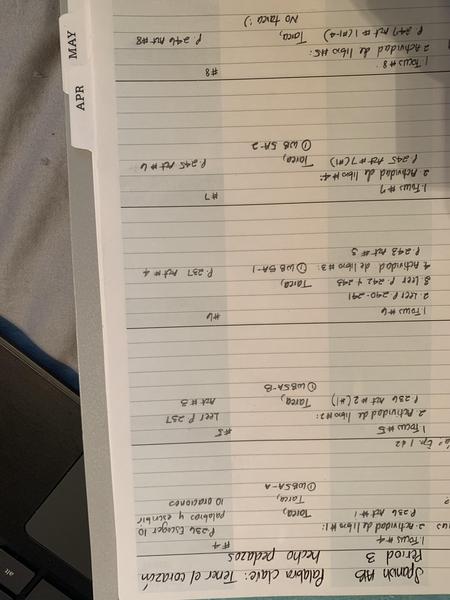 Spanish HB
Period 3
Palabra clave: Tener el corazón
hecho pedazos
1. Focus #4
2. Actividad de libro #1:
P. 236 Act #1
Tarea,
Tarea,
① WB5A-A
#4
P. 236 Escoger 10
palabras y escribir
10 oraciones
Ep. 1 &2
1. Focus #5
2. Actividad de libro #2:
P. 236 Act #2 (#1)
Tarea,
① WB5A-B
#5
Leer P. 237
Act #3
1. Focus #6
2. Leer P. 240-241
3. Leer P. 242 y 243
4. Actividad de libro #3:
P. 243 Act #5
Tarea,
① WB 5A-1
#6
P. 237 Act #4
1. Focus #7
2. Actividad de libro #4:
P. 245 Act #7 (#1)
Tarea,
① WB 5A-2
#7
P. 245 Act #6
1. Focus #8
2. Actividad de libro #5:
P. 247 Act #1 (#1-4)
Tarea,
No tarea :)
#8
P. 246 Act #8
APR
MAY
alt